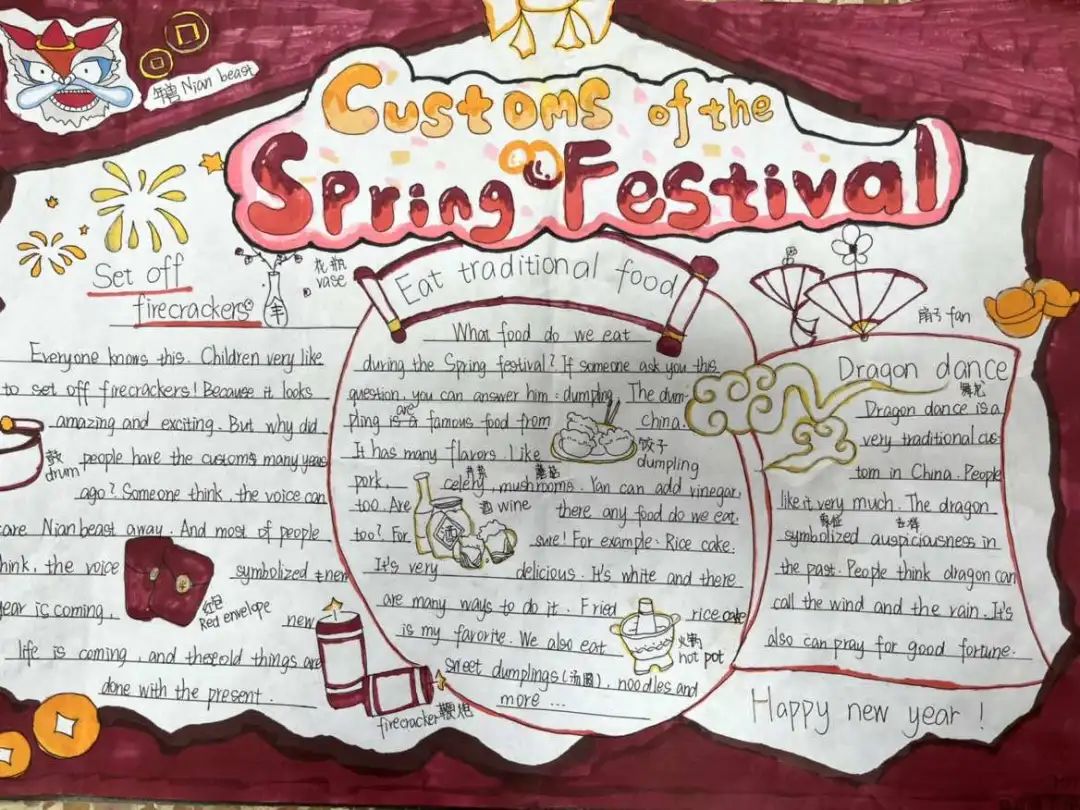 年兽 Nian beast
Customs of the
Spring Festival
Set off
firecrackers
花瓶
vase
Everyone knows this. Children very like
to set off firecrackers! Because it looks
amazing and exciting. But why did
鼓
drum
people have the customs many years
ago? Someone think, the voice can
Nian beast away. And most of people
think, the voice
symbolized
year is coming,
new
红包
Red envelope
life is coming, and these old things are
done with the present.
firecracker 鞭炮
Eat traditional food
What food do we eat
during the Spring festival? If someone ask you this
question, you can answer him: dumpling. The dum-
are
pling is a famous food from China.
It has many flavors. Like
饺子
dumpling
pork,
celery, mushrooms. Yan can add vinegar,
蘑菇
too. Are
酒 wine
there any food do we eat,
too? For
sure! For example: Rice cake.
It's very delicious. It's white and there
are many ways to do it. Fried rice cake
is my favorite. We also eat
火锅
hot pot
sweet dumplings (汤圆), noodles and
more ...
扇子 fan
Dragon dance
舞龙
Dragon dance is a
very traditional cus-
tom in China. People
like it very much. The dragon
象征 吉祥
symbolized auspiciousness in
the past. People think dragon can
call the wind and the rain. It's
also can pray for good fortune.
Happy new year!